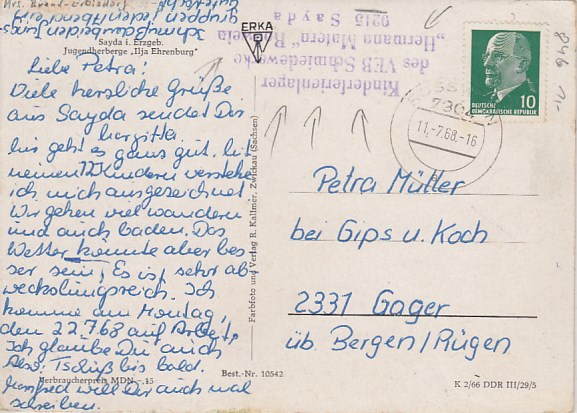 Krs. Brand-Erbisdorf
Sayda i. Erzgeb.
Jugendherberge „Ilja Ehrenburg"
Liebe Petra!
Viele herzliche Grüße
aus Sayda sendet Dir
Margitta.
Mir geht es ganz gut. Mit
meinen 12 Kindern verstehe
ich mich ausgezeichnet
Wir gehen viel wandern
und auch baden. Das
Wetter könnte aber bes
ser sein. Es ist sehr ab
wechslungsreich. Ich
komme am Montag,
den 22.7.68 auf Arbeit,
Ich glaube Du auch
Also, Tschüß bis bald.
Manfred will Dir auch mal
schreiben.
Verbraucherpreis MDN -,15
ERKA
Kinderferienlager
des VEB Schmiedewerke
„Hermann Matern"
9215 Sayda
DEUTSCHE
DEMOKRATISCHE REPUBLIK
10
7304
11.-7.68.-16
846
Farbfoto und Verlag R. Kallmer, Zwickau (Sachsen)
Petra Müller
bei Gips u. Koch
2331 Gager
üb. Bergen/Rügen
Best.-Nr. 10542
K 2/66 DDR III/29/5